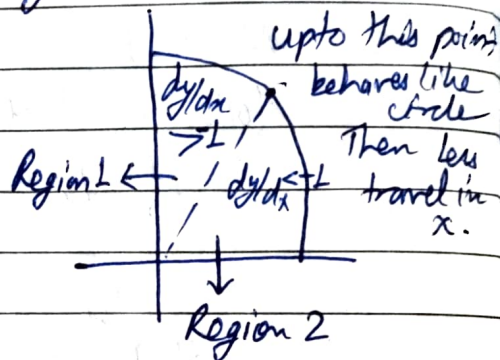 upto this point
behaves like
circle
Then less
travel in
x.
dy/dx
>-1
Region 1
dy/dx <-1
Region 2